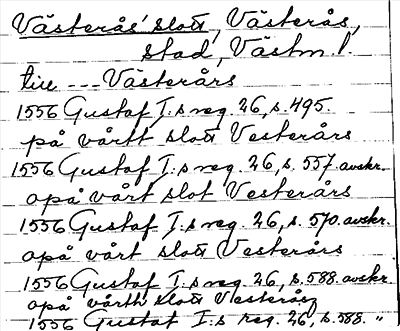 Västerås' slott, Västerås,
stad, Västm. l.
till --- Västerårs
1556 Gustaf I:s reg. 26, s. 495.
på vårtt slott Vesterårs
1556 Gustaf I:s reg. 26, s. 557. avskr.
opå vårt slot Vesterårs
1556 Gustaf I:s reg. 26, s. 570. avskr.
opå vårt slott Vesterårs
1556 Gustaf I:s reg. 26, s. 588. avskr.
opå vårth slott Vesterårs
1556 Gustaf I:s reg. 26, s. 588. "